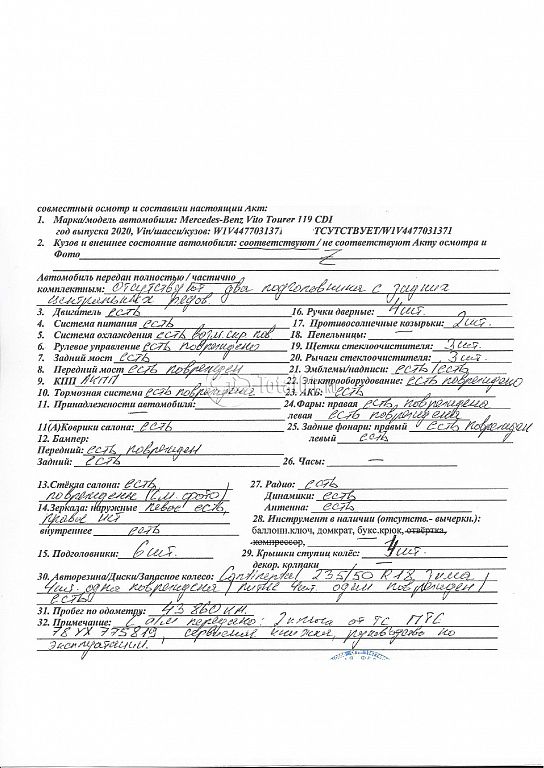 совместный осмотр и составили настоящий Акт:
1. Марка/модель автомобиля: Mercedes-Benz Vito Tourer 119 CDI
год выпуска 2020, Vin/шасси/кузов: W1V4477031371 ТСУТСТВУЕТ/W1V4477031371
2. Кузов и внешнее состояние автомобиля: соответствуют / не соответствуют Акту осмотра и
Фото
Автомобиль передан полностью / частично
комплектным: отсутствуют, два подголовника с задних
центральных рядов
3. Двигатель есть 16. Ручки дверные: 4 шт.
4. Система питания есть 17. Противосолнечные козырьки: 2 шт.
5. Система охлаждения есть возм. скр. пов 18. Пепельницы:
6. Рулевое управление есть повреждено 19. Щетки стеклоочистителя: 3 шт.
7. Задний мост есть 20. Рычаги стеклоочистителя: 3 шт.
8. Передний мост есть поврежден 21. Эмблемы/надписи: есть/есть
9. КПП АКПП 22. Электрооборудование: есть повреждено
10. Тормозная система есть повреждена 23. АКБ: есть
11. Принадлежности автомобиля: — 24. Фары: правая есть, повреждена
левая есть повреждена
11(А)Коврики салона: есть 25. Задние фонари: правый есть поврежден
12. Бампер: левый есть
Передний: есть поврежден
Задний: есть 26. Часы: —
13.Стёкла салона: есть, 27. Радио: есть
повреждены (см. фото) Динамики: есть
14.Зеркала: наружные левое есть, Антенна: есть
правое нет 28. Инструмент в наличии (отсутств.- вычеркн.):
внутреннее есть баллонн.ключ, домкрат, букс.крюк, отвёртка,
компрессор,
15. Подголовники: 6 шт. 29. Крышки ступиц колёс: 4 шт.
декор. колпаки —
30. Авторезина/Диски/Запасное колесо: Continental 235/50 R18, Зима
4шт. одна повреждена / литые 4шт. один поврежден /
есть
31. Пробег по одометру: 43860 км.
32. Примечание: С а/м передано: 2 ключа от ТС ПТС
78 УХ 775819, сервисная книжка, руководство по
эксплуатации.